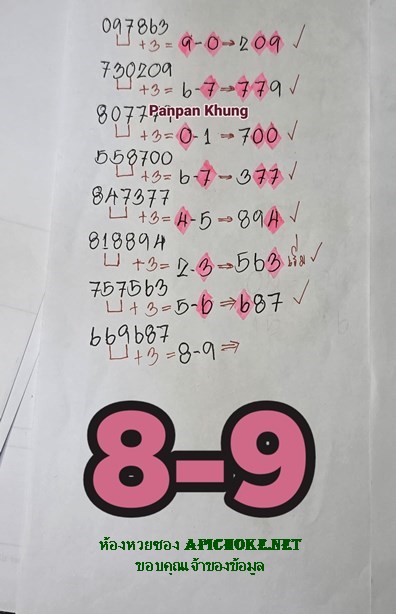 097863
+3= 9-0⇒209 ✓
730209
+3= 6-7⇒779 ✓
Panpan Khung
+3= 0-1⇒700 ✓
558700
+3= 6-7⇒377 ✓
847377
+3= 4-5⇒894 ✓
818894
+3= 2-3⇒563 ✓
757563
+3= 5-6⇒687 ✓
669687
+3=8-9⇒
8-9
ห้องหวยซอง APICHOKE.NET
ขอบคุณเจ้าของข้อมูล